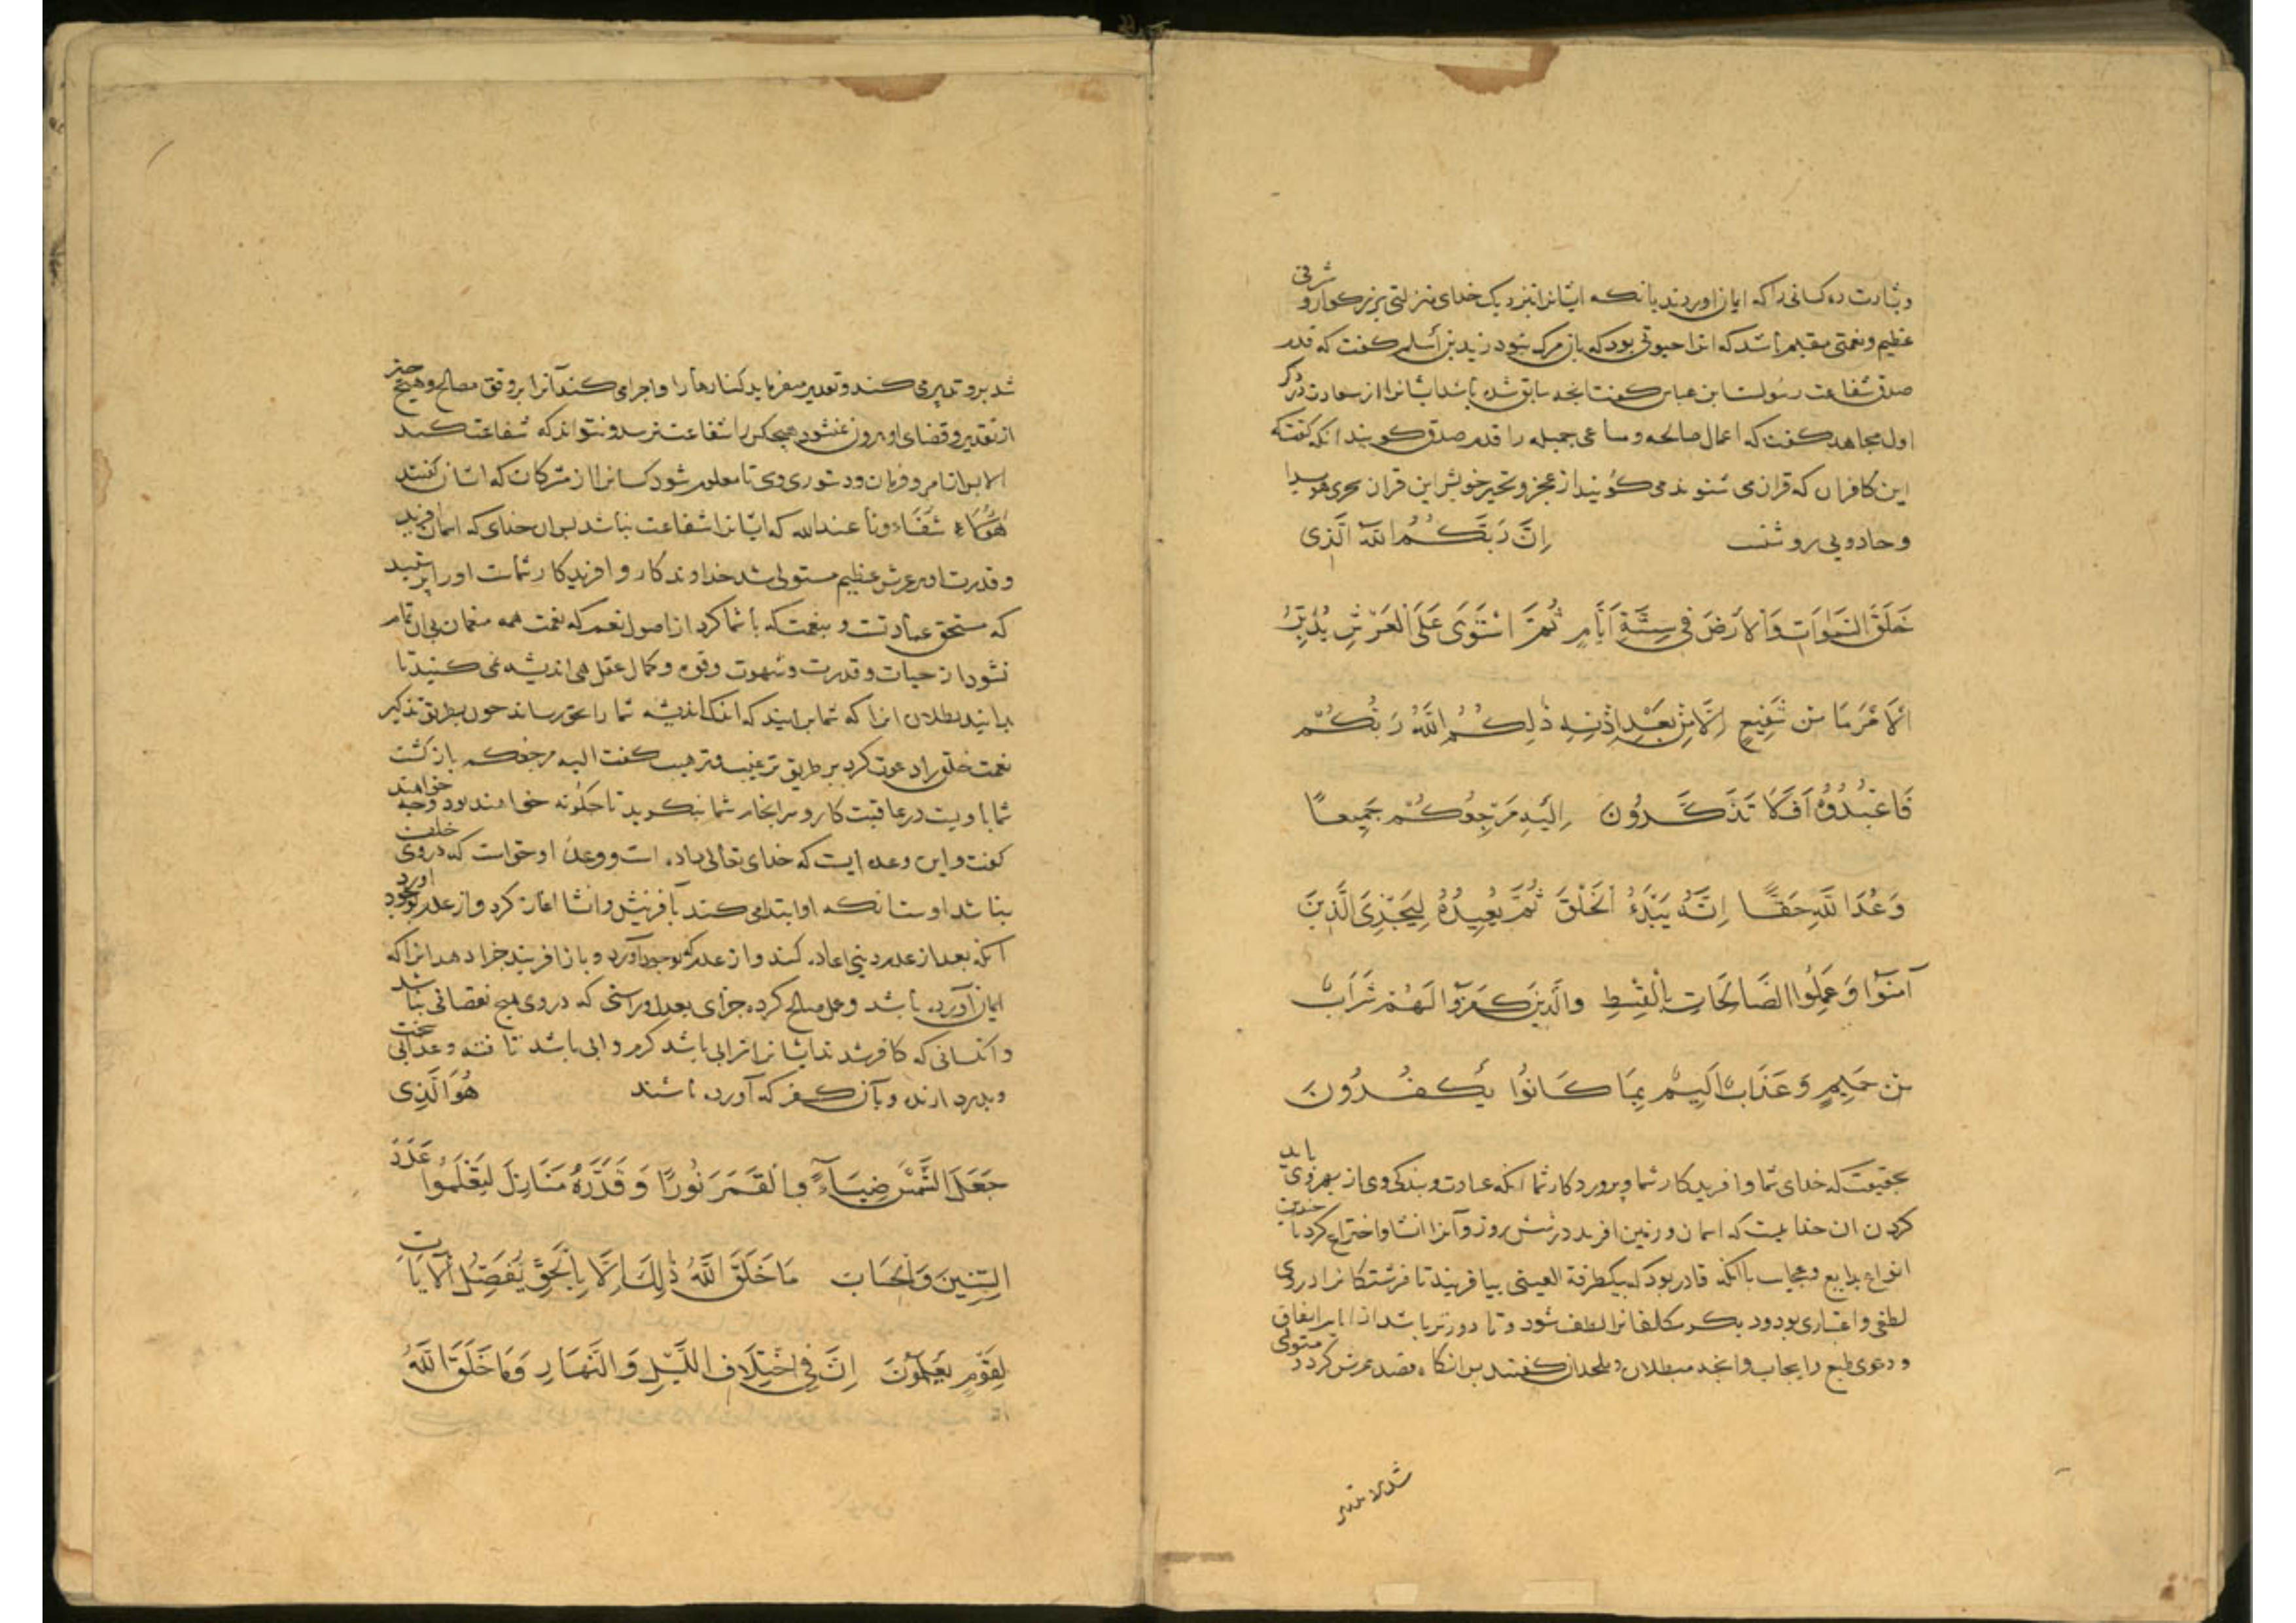 و بشارت ده کسانی را که ایمان اوردند بانکه ایشانرا بنزدیک خدای منزلتی بزرکوار و شرفی
عظیم و نعمتی مقیم باشد که انرا حیوتی بود که باز مرک نبود زید بن أسلم کفت که قدم
صدق شفاعت رسولست ابن عباس کفت انچه سابق شده باشد ایشانرا از سعادت در ذکر
اول مجاهد کفت که اعمال صالحه و مساعی جمیله را قدم صدق کویند انکه کفت که
این کافران که قران می شنوند می کویند از عجز و تحیر خویش این قران سحری هویدا
و جادویی روشنست اِنَّ رَبَّكُمُ اللّٰهُ الَّذِی
خَلَقَ السَّمٰوَاتِ وَالْاَرْضَ فِی سِتَّةِ اَیَّامٍ ثُمَّ اسْتَوٰی عَلَی الْعَرْشِ یُدَبِّرُ
الْاَمْرَ مَا مِنْ شَفِیعٍ اِلَّا مِنْ بَعْدِ اِذْنِهِ ذٰلِكُمُ اللّٰهُ رَبُّكُمْ
فَاعْبُدُوهُ اَفَلَا تَذَكَّرُونَ اِلَیْهِ مَرْجِعُكُمْ جَمِیعًا
وَعْدَ اللّٰهِ حَقًّا اِنَّهُ یَبْدَءُ الْخَلْقَ ثُمَّ یُعِیدُهُ لِیَجْزِیَ الَّذِینَ
آمَنُوا وَعَمِلُوا الصَّالِحَاتِ بِالْقِسْطِ والَّذِینَ كَفَرُوا لَهُمْ شَرَابٌ
مِنْ حَمِیمٍ وَعَذَابٌ اَلِیمٌ بِمَا كَانُوا یَكْفُرُونَ
بحقیقت که خدای شما و افریدکار شما و پروردکار شما انکه عبادت و بندکی وی از بهر وی باید
کردن ان خدایست که اسمان و زمین افرید در شش روز و آنرا انشا و اختراع کرد با چندین
انواع بدایع و عجایب باانکه قادر بود که بیکطرفة العینی بیافریند تا فرشتکانرا در وی
لطفی و اعتباری بود و دیکر مکلفانرا لطف شود و تا دورتر باشد از ایهام اتفاق
و دعوی طبع و ایجاب و انچه مبطلان و ملحدان کفتند پس انکاه قصد عرش کرد و متولی
شد بر و تدبیر
شد بر و تدبیر می کند و تقدیر میفرماید کنارها را و اجرا می کند آنرا بر وفق مصالح و هیچ چیز
از تقدیر و قضای او بیرون نشود هیچکس را شفاعت نرسد و نتواند که شفاعت کند
الا بر ان امر و فرمان و دستوری وی تا معلوم شود کسانرا از مشرکان که ایشان کفتند
هَؤُلَاءِ شُفَعَاءُونا عند الله که ایشانرا شفاعت نباشد پس ان خدای که اسمان افرید
و قدرت او بر عرش عظیم مستولی شد خداوندکار و افریدکار شماست او را پرستید
که مستحق عبادتست و بنعمت که با شما کرد از اصول نعم که نعمت همه منعمان بی ان تمام
نشود از حیات و قدرت و شهوت و قوه و کمال عقل هی اندیشه نمی کنید تا
بدانید بطلان انرا که شما برانید که اندک اندیشه شما را بحق رساند چون بطریق تذکیر
نعمت خلق را دعوت کرد بر طریق ترغیب و ترهیب کفت الیه مرجعکم بازکشت
شما باویست در عاقبت کار و سرانجام شما بنکوید تا چکونه خواهند بود و چه خواهند
کفت و این وعده ایست که خدای تعالی داده است و وعدهٔ او حق است که در وی خلف
نباشد اوست انکه او ابتدا می کند بآفرینش و انشا اغاز کرد و از عدم بوجود اورد
انکه بعد از عدم دیکر اعاده کند و از عدم بوجود آورد و باز افریند جزا دهد انرا که
ایمان آورده باشد و عمل صالح کرده جزای بعدل و راستی که در وی هیچ نقصانی نباشد
و انکسانی که کافر شدند ایشانرا شرابی باشد کرم و ابی باشد تافته و عذابی سخت
و بدرد ارنده و بآن کفر که آورده باشند هُوَ الَّذِی
جَعَلَ الشَّمْسَ ضِیَاءً وَالْقَمَرَ نُورًا وَقَدَّرَهُ مَنَازِلَ لِتَعْلَمُوا عَدَدَ
السِّنِینَ وَالْحِسَابَ مَا خَلَقَ اللّٰهُ ذٰلِكَ اِلَّا بِالْحَقِّ یُفَصِّلُ الْآیَاتِ
لِقَوْمٍ یَعْلَمُونَ اِنَّ فِی اخْتِلَافِ اللَّیْلِ وَالنَّهَارِ وَمَا خَلَقَ اللّٰهُ